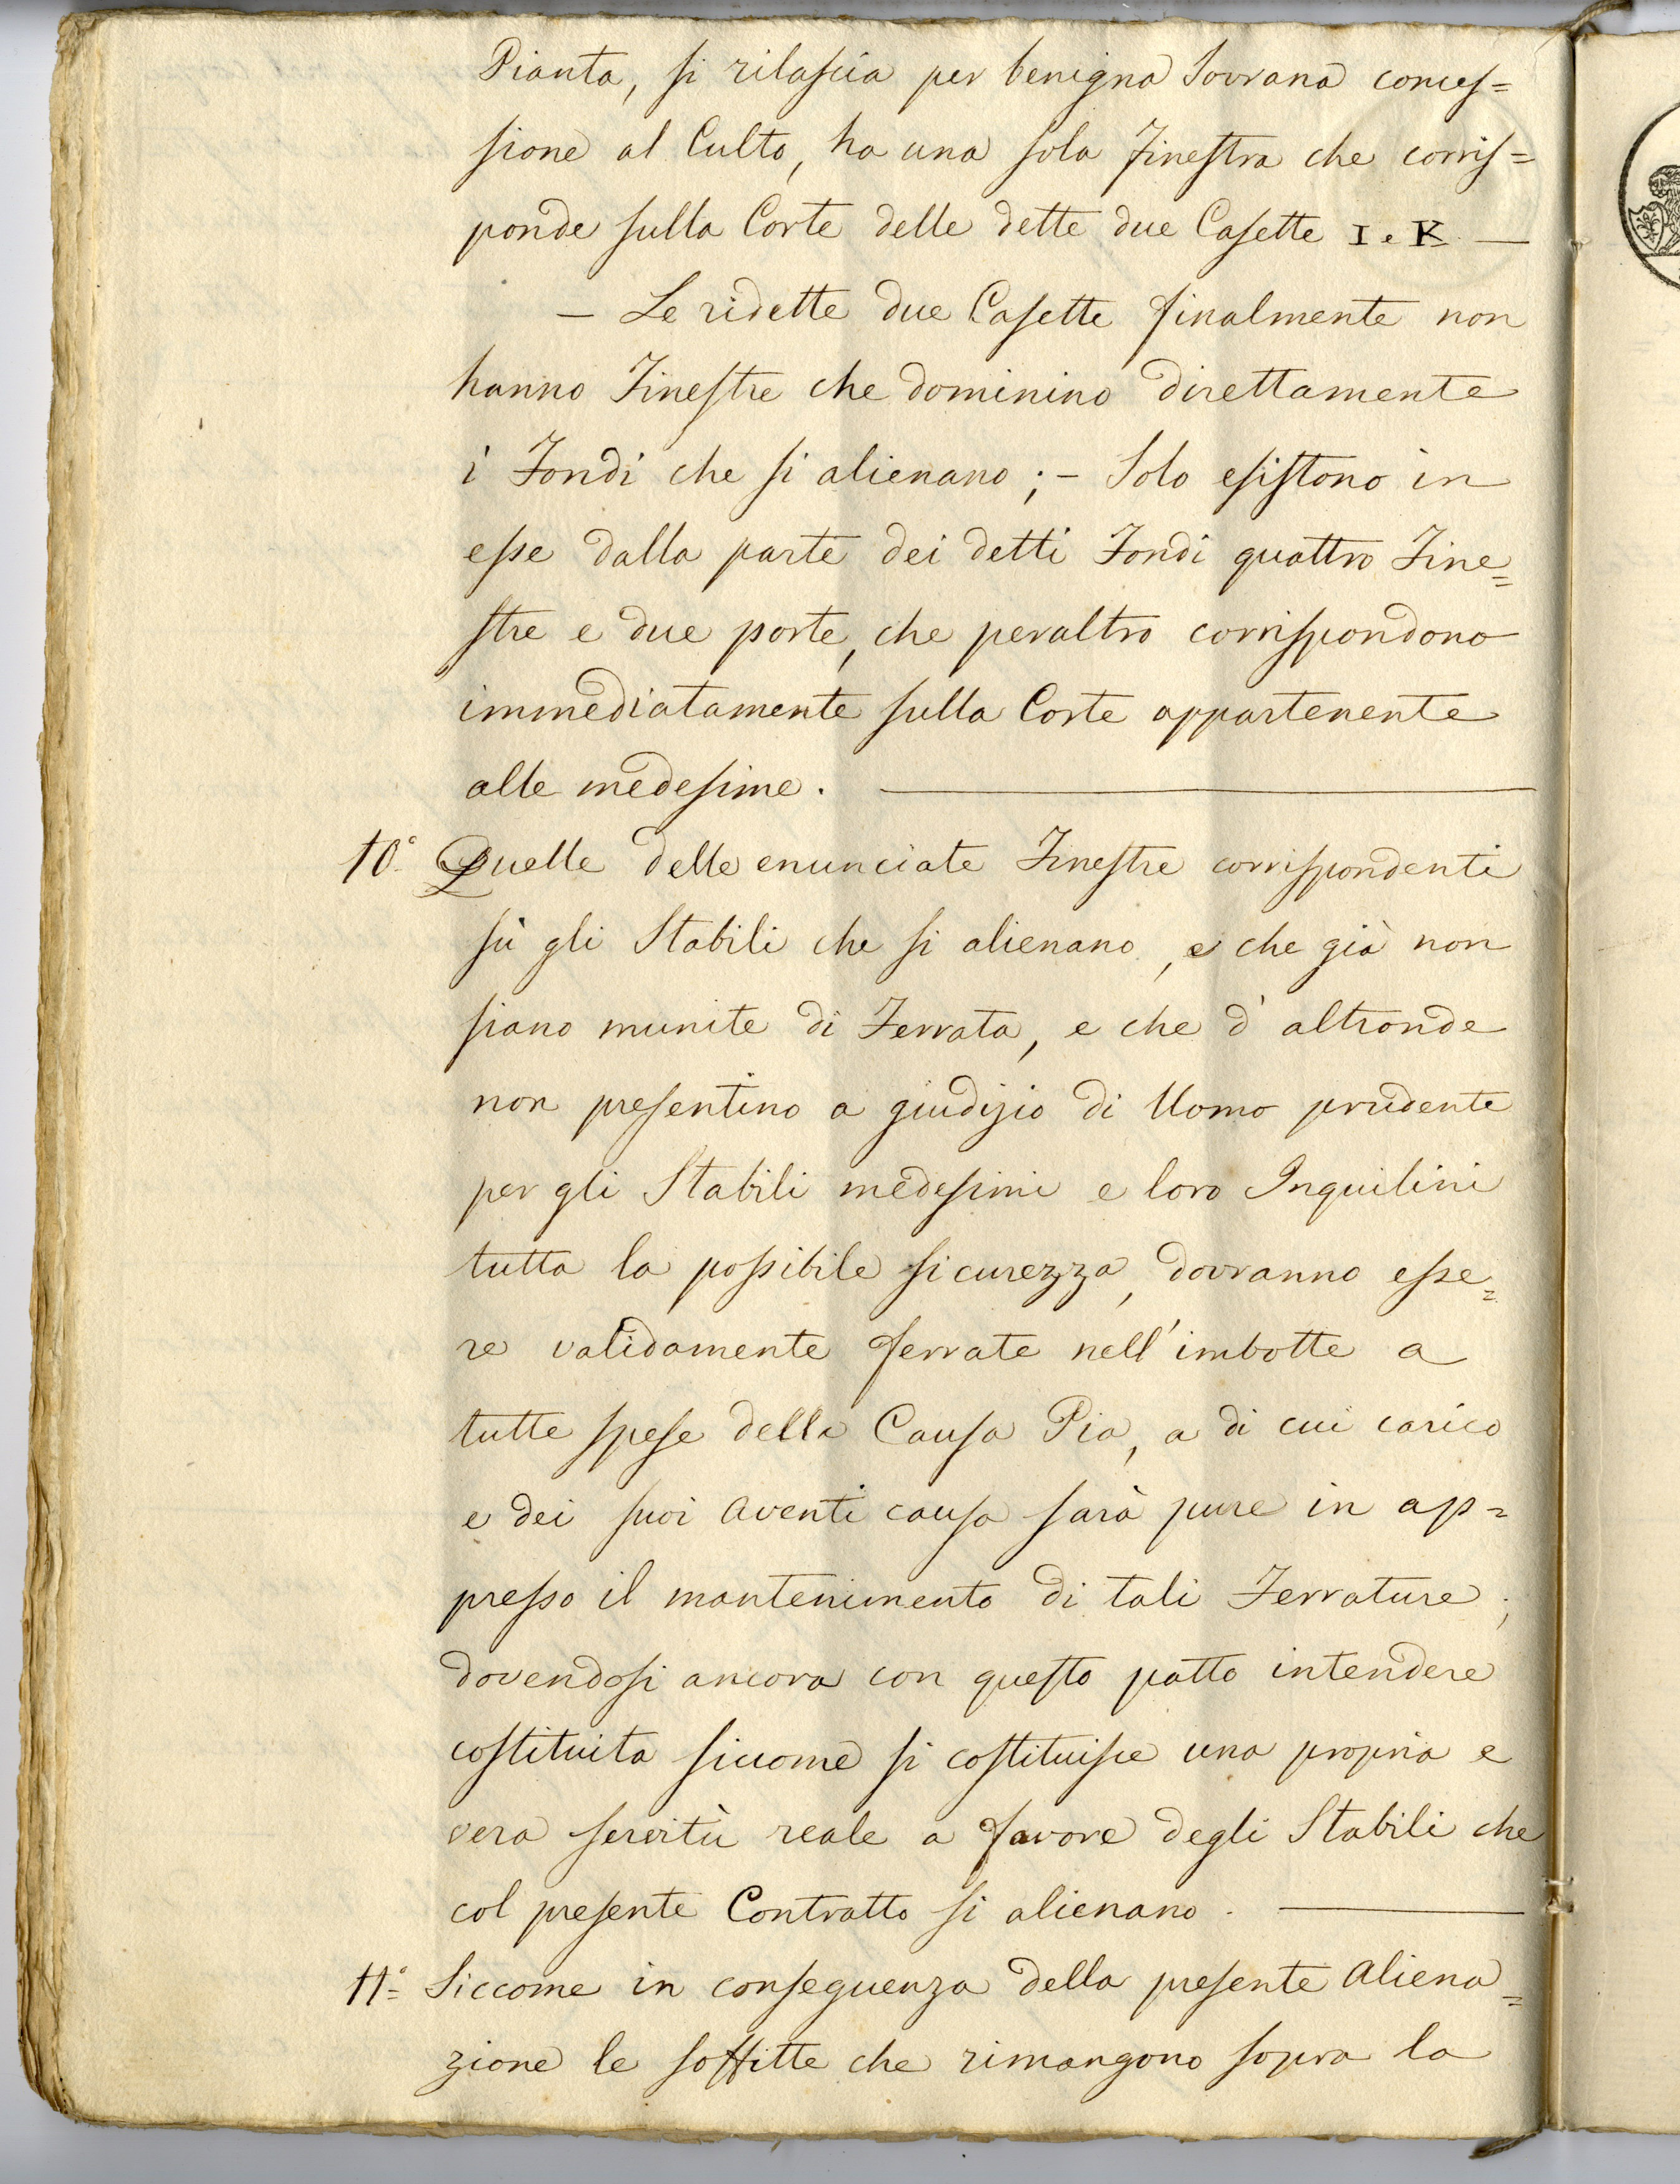 Pianta, si rilascia per benigna Sovrana conces=
sione al Culto, ha una sola Finestra che corris=
ponde sulla Corte delle dette due Casette I. e K. —
— Le ridette due Casette finalmente non
hanno Finestre che dominino direttamente
i Fondi che si alienano ; — Solo esistono in
esse dalla parte dei detti Fondi quattro Fine=
stre e due porte, che peraltro corrispondono
immediatamente sulla Corte appartenente
alle medesime. —
10.° Quelle delle enunciate Finestre corrispondenti
sù gli Stabili che si alienano, e che già non
siano munite di Ferrata, e che d'altronde
non presentino a giudizio di Uomo prudente
per gli Stabili medesimi e loro Inquilini
tutta la possibile sicurezza, dovranno esse=
re validamente ferrate nell'imbotte a
tutte spese della Causa Pia, a di cui carico
e dei suoi aventi causa sarà pure in ap=
presso il mantenimento di tali Ferrature;
dovendosi ancora con questo patto intendere
costituita siccome si costituisce una propria e
vera servitù reale a favore degli Stabili che
col presente Contratto si alienano. —
11.° Siccome in conseguenza della presente aliena=
zione le soffitte che rimangono sopra la